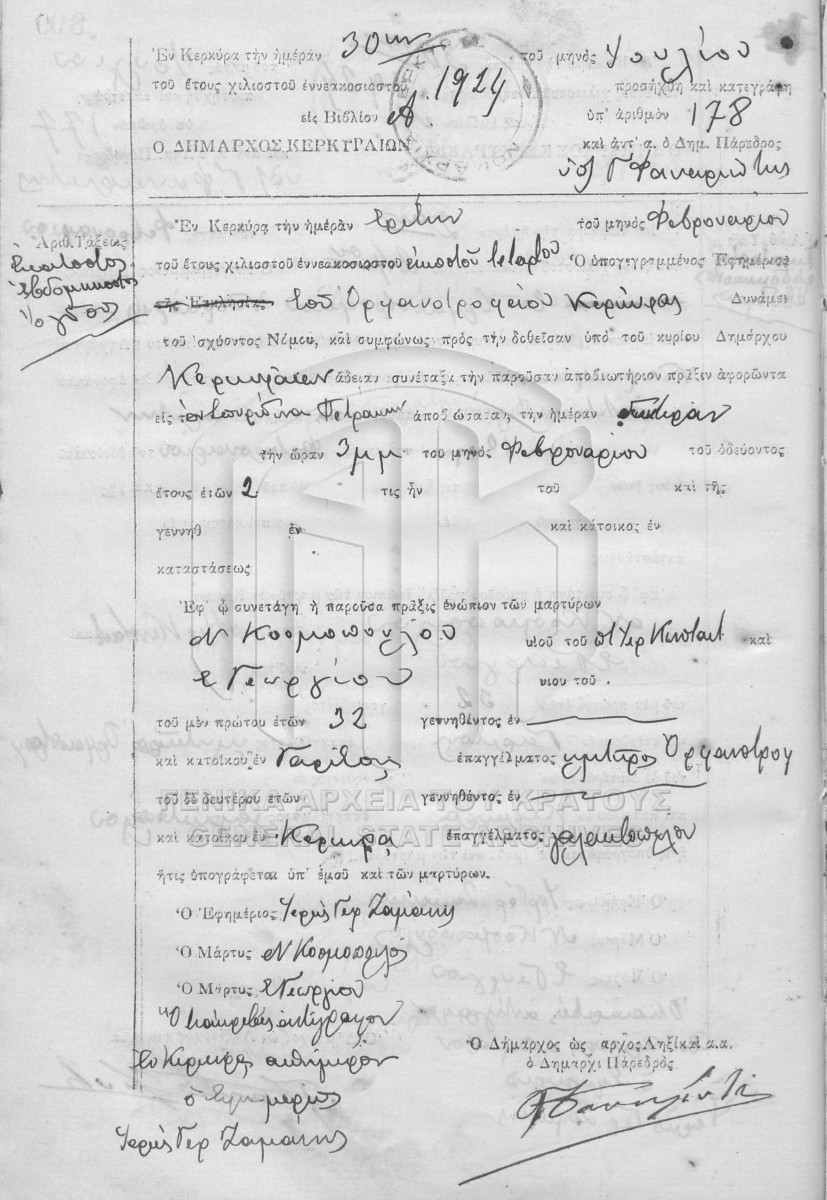 Ἐν Κερκύρᾳ τὴν ἡμέραν 30ην τοῦ μηνὸς Ἰουλίου
τοῦ ἔτους χιλιοστοῦ ἐννεακοσιοστοῦ 1924 προσήχθη καὶ κατεγράφη
εἰς Βιβλίον Α ὑπ' ἀριθμὸν 178
Ο ΔΗΜΑΡΧΟΣ ΚΕΡΚΥΡΑΙΩΝ καὶ ἀντ' α. ὁ Δημ. Πάρεδρος
Ἐν Κερκύρᾳ τὴν ἡμέραν τρίτην τοῦ μηνὸς Φεβρουαρίου
Ἀριθ. Τάξεως
Ἑκατοστὸς
ἑβδομηκοστὸς
ὄγδοος
τοῦ ἔτους χιλιοστοῦ ἐννεακοσιοστοῦ εἰκοστοῦ τετάρτου Ὁ ὑπογεγραμμένος Ἐφημέριος
τῆς Ἐκκλησίας τοῦ Ὀρφανοτροφείου Κερκύρας Δυνάμει
τοῦ ἰσχύοντος Νόμου, καὶ συμφώνως πρὸς τὴν δοθεῖσαν ὑπὸ τοῦ κυρίου Δημάρχου
Κερκυραίων ἄδειαν συνέταξα τὴν παροῦσαν ἀποβιωτήριον πρᾶξιν ἀφορῶντα
εἰς τὸν ἀποβιώσαντα, τὴν ἡμέραν
τὴν ὥραν 3 μμ τοῦ μηνὸς Φεβρουαρίου τοῦ ὁδεύοντος
ἔτους ἐτῶν 2 τις ἦν τοῦ καὶ τῆς
γεννηθ ἐν καὶ κάτοικος ἐν
καταστάσεως
Ἐφ' ᾧ συνετάγη ἡ παροῦσα πρᾶξις ἐνώπιον τῶν μαρτύρων
Ν Κοσμοπούλου υἱοῦ τοῦ καὶ
Ε Γεωργίου υιου τοῦ .
τοῦ μὲν πρώτου ἐτῶν 32 γεννηθέντος ἐν
καὶ κατοίκου ἐν Γαρίτσης ἐπαγγέλματος Ὀρφανοτροφ
τοῦ δὲ δευτέρου ἐτῶν γεννηθέντος ἐν
ΓΕΝΙΚΑ ΑΡΧΕΙΑ ΤΟΥ ΚΡΑΤΟΥΣ
GENERAL STATE ARCHIVES
καὶ κατοίκου ἐν Κέρκυρᾳ ἐπαγγέλματος γαλακτοπώλου
ἥτις ὑπογράφεται ὑπ' ἐμοῦ καὶ τῶν μαρτύρων.
Ὁ Ἐφημέριος Ἱερεὺς Γερ Ζαμάνης
Ὁ Μάρτυς Ν Κοσμόπουλος
Ὁ Μάρτυς Ε Γεωργίου
Ὅτι ἀκριβὲς ἀντίγραφον
Ἐν Κερκύρᾳ αὐθημερὸν
ὁ Ἐφημέριος
Ἱερεὺς Γερ Ζαμάνης
Ὁ Δήμαρχος ὡς ἀρχος Ληξίκαὶ α.α.
ὁ Δημαρχι Πάρεδρὸς